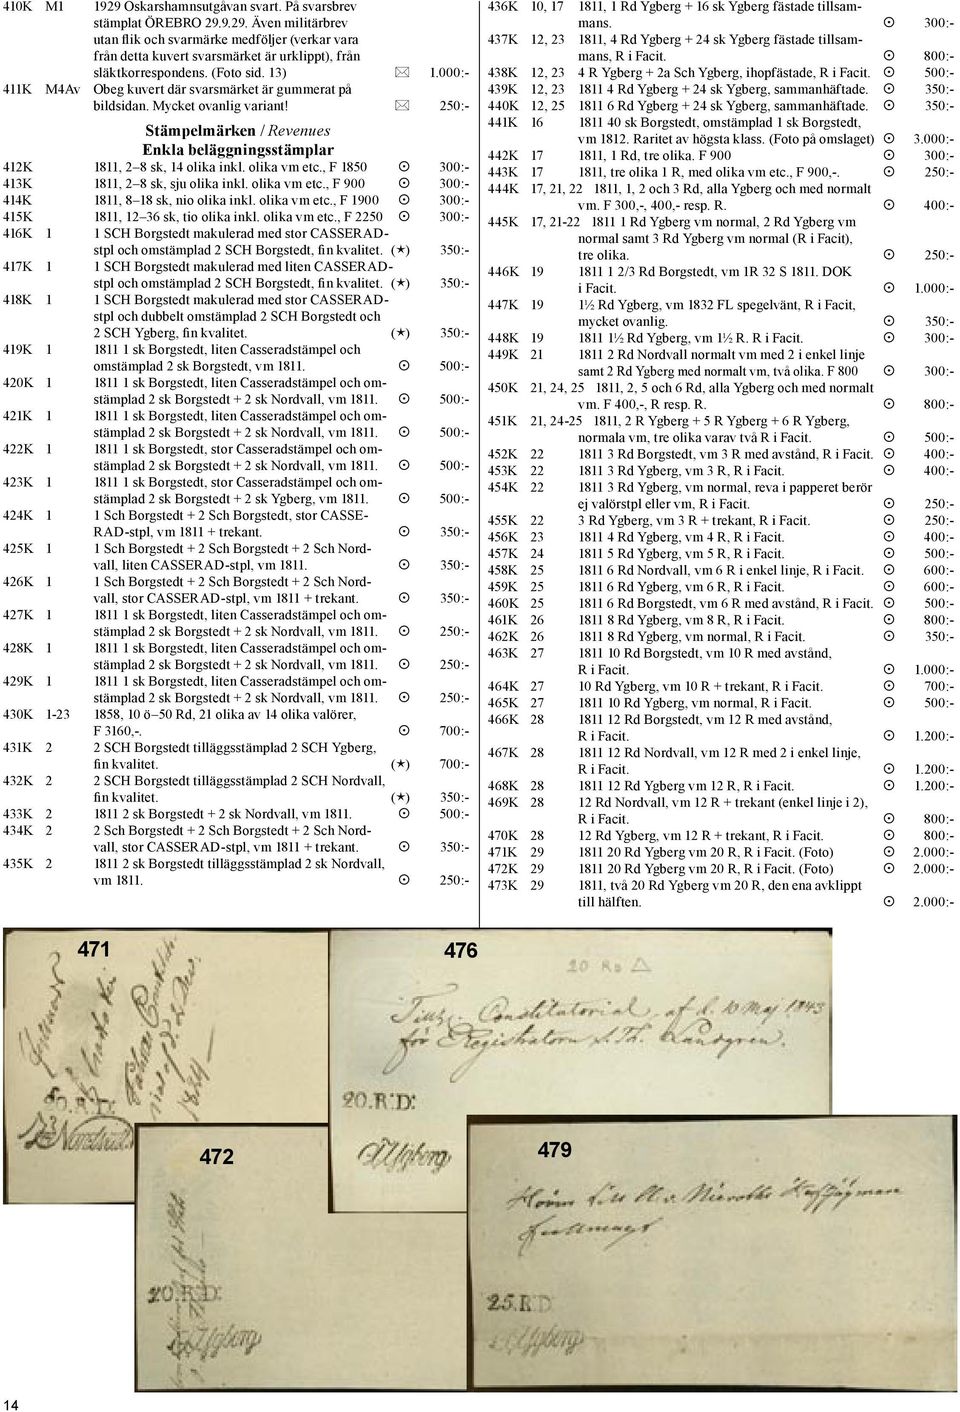 410K M1 1929 Oskarshamnsutgåvan svart. På svarsbrev
stämplat ÖREBRO 29.9.29. Även militärbrev
utan flik och svarmärke medföljer (verkar vara
från detta kuvert svarsmärket är urklippt), från
släktkorrespondens. (Foto sid. 13) 1.000:-
411K M4Av Obeg kuvert där svarsmärket är gummerat på
bildsidan. Mycket ovanlig variant! 250:-
Stämpelmärken / Revenues
Enkla beläggningsstämplar
412K 1811, 2–8 sk, 14 olika inkl. olika vm etc., F 1850 ⊙ 300:-
413K 1811, 2–8 sk, sju olika inkl. olika vm etc., F 900 ⊙ 300:-
414K 1811, 8–18 sk, nio olika inkl. olika vm etc., F 1900 ⊙ 300:-
415K 1811, 12–36 sk, tio olika inkl. olika vm etc., F 2250 ⊙ 300:-
416K 1 1 SCH Borgstedt makulerad med stor CASSERAD-
stpl och omstämplad 2 SCH Borgstedt, fin kvalitet. (★) 350:-
417K 1 1 SCH Borgstedt makulerad med liten CASSERAD-
stpl och omstämplad 2 SCH Borgstedt, fin kvalitet. (★) 350:-
418K 1 1 SCH Borgstedt makulerad med stor CASSERAD-
stpl och dubbelt omstämplad 2 SCH Borgstedt och
2 SCH Ygberg, fin kvalitet. (★) 350:-
419K 1 1811 1 sk Borgstedt, liten Casseradstämpel och
omstämplad 2 sk Borgstedt, vm 1811. ⊙ 500:-
420K 1 1811 1 sk Borgstedt, liten Casseradstämpel och om-
stämplad 2 sk Borgstedt + 2 sk Nordvall, vm 1811. ⊙ 500:-
421K 1 1811 1 sk Borgstedt, liten Casseradstämpel och om-
stämplad 2 sk Borgstedt + 2 sk Nordvall, vm 1811. ⊙ 500:-
422K 1 1811 1 sk Borgstedt, stor Casseradstämpel och om-
stämplad 2 sk Borgstedt + 2 sk Nordvall, vm 1811. ⊙ 500:-
423K 1 1811 1 sk Borgstedt, stor Casseradstämpel och om-
stämplad 2 sk Borgstedt + 2 sk Ygberg, vm 1811. ⊙ 500:-
424K 1 1 Sch Borgstedt + 2 Sch Borgstedt, stor CASSE-
RAD-stpl, vm 1811 + trekant. ⊙ 350:-
425K 1 1 Sch Borgstedt + 2 Sch Borgstedt + 2 Sch Nord-
vall, liten CASSERAD-stpl, vm 1811. ⊙ 350:-
426K 1 1 Sch Borgstedt + 2 Sch Borgstedt + 2 Sch Nord-
vall, stor CASSERAD-stpl, vm 1811 + trekant. ⊙ 350:-
427K 1 1811 1 sk Borgstedt, liten Casseradstämpel och om-
stämplad 2 sk Borgstedt + 2 sk Nordvall, vm 1811. ⊙ 250:-
428K 1 1811 1 sk Borgstedt, liten Casseradstämpel och om-
stämplad 2 sk Borgstedt + 2 sk Nordvall, vm 1811. ⊙ 250:-
429K 1 1811 1 sk Borgstedt, liten Casseradstämpel och om-
stämplad 2 sk Borgstedt + 2 sk Nordvall, vm 1811. ⊙ 250:-
430K 1-23 1858, 10 ö–50 Rd, 21 olika av 14 olika valörer,
F 3160,-. ⊙ 700:-
431K 2 2 SCH Borgstedt tilläggsstämplad 2 SCH Ygberg,
fin kvalitet. (★) 700:-
432K 2 2 SCH Borgstedt tilläggsstämplad 2 SCH Nordvall,
fin kvalitet. (★) 350:-
433K 2 1811 2 sk Borgstedt + 2 sk Nordvall, vm 1811. ⊙ 500:-
434K 2 2 Sch Borgstedt + 2 Sch Borgstedt + 2 Sch Nord-
vall, stor CASSERAD-stpl, vm 1811 + trekant. ⊙ 350:-
435K 2 1811 2 sk Borgstedt tilläggsstämplad 2 sk Nordvall,
vm 1811. ⊙ 250:-
436K 10, 17 1811, 1 Rd Ygberg + 16 sk Ygberg fästade tillsam-
mans. ⊙ 300:-
437K 12, 23 1811, 4 Rd Ygberg + 24 sk Ygberg fästade tillsam-
mans, R i Facit. ⊙ 800:-
438K 12, 23 4 R Ygberg + 2a Sch Ygberg, ihopfästade, R i Facit. ⊙ 500:-
439K 12, 23 1811 4 Rd Ygberg + 24 sk Ygberg, sammanhäftade. ⊙ 350:-
440K 12, 25 1811 6 Rd Ygberg + 24 sk Ygberg, sammanhäftade. ⊙ 350:-
441K 16 1811 40 sk Borgstedt, omstämplad 1 sk Borgstedt,
vm 1812. Raritet av högsta klass. (Foto på omslaget) ⊙ 3.000:-
442K 17 1811, 1 Rd, tre olika. F 900 ⊙ 300:-
443K 17 1811, tre olika 1 R, med olika vm etc., F 900,-. ⊙ 250:-
444K 17, 21, 22 1811, 1, 2 och 3 Rd, alla Ygberg och med normalt
vm. F 300,-, 400,- resp. R. ⊙ 400:-
445K 17, 21-22 1811 1 Rd Ygberg vm normal, 2 Rd Ygberg vm
normal samt 3 Rd Ygberg vm normal (R i Facit),
tre olika. ⊙ 250:-
446K 19 1811 1 2/3 Rd Borgstedt, vm 1R 32 S 1811. DOK
i Facit. ⊙ 1.000:-
447K 19 1½ Rd Ygberg, vm 1832 FL spegelvänt, R i Facit,
mycket ovanlig. ⊙ 350:-
448K 19 1811 1½ Rd Ygberg, vm 1½ R. R i Facit. ⊙ 300:-
449K 21 1811 2 Rd Nordvall normalt vm med 2 i enkel linje
samt 2 Rd Ygberg med normalt vm, två olika. F 800 ⊙ 300:-
450K 21, 24, 25 1811, 2, 5 och 6 Rd, alla Ygberg och med normalt
vm. F 400,-, R resp. R. ⊙ 800:-
451K 21, 24-25 1811, 2 R Ygberg + 5 R Ygberg + 6 R Ygberg,
normala vm, tre olika varav två R i Facit. ⊙ 500:-
452K 22 1811 3 Rd Borgstedt, vm 3 R med avstånd, R i Facit. ⊙ 400:-
453K 22 1811 3 Rd Ygberg, vm 3 R, R i Facit. ⊙ 400:-
454K 22 1811 3 Rd Ygberg, vm normal, reva i papperet berör
ej valörstpl eller vm, R i Facit. ⊙ 250:-
455K 22 3 Rd Ygberg, vm 3 R + trekant, R i Facit. ⊙ 250:-
456K 23 1811 4 Rd Ygberg, vm 4 R, R i Facit. ⊙ 400:-
457K 24 1811 5 Rd Ygberg, vm 5 R, R i Facit. ⊙ 500:-
458K 25 1811 6 Rd Nordvall, vm 6 R i enkel linje, R i Facit. ⊙ 600:-
459K 25 1811 6 Rd Ygberg, vm 6 R, R i Facit. ⊙ 600:-
460K 25 1811 6 Rd Borgstedt, vm 6 R med avstånd, R i Facit. ⊙ 500:-
461K 26 1811 8 Rd Ygberg, vm 8 R, R i Facit. ⊙ 600:-
462K 26 1811 8 Rd Ygberg, vm normal, R i Facit. ⊙ 350:-
463K 27 1811 10 Rd Borgstedt, vm 10 R med avstånd,
R i Facit. ⊙ 1.000:-
464K 27 10 Rd Ygberg, vm 10 R + trekant, R i Facit. ⊙ 700:-
465K 27 1811 10 Rd Ygberg, vm normal, R i Facit. ⊙ 500:-
466K 28 1811 12 Rd Borgstedt, vm 12 R med avstånd,
R i Facit. ⊙ 1.200:-
467K 28 1811 12 Rd Nordvall, vm 12 R med 2 i enkel linje,
R i Facit. ⊙ 1.200:-
468K 28 1811 12 Rd Ygberg, vm 12 R, R i Facit. ⊙ 1.200:-
469K 28 12 Rd Nordvall, vm 12 R + trekant (enkel linje i 2),
R i Facit. ⊙ 800:-
470K 28 12 Rd Ygberg, vm 12 R + trekant, R i Facit. ⊙ 800:-
471K 29 1811 20 Rd Ygberg vm 20 R, R i Facit. (Foto) ⊙ 2.000:-
472K 29 1811 20 Rd Ygberg vm 20 R, R i Facit. (Foto) ⊙ 2.000:-
473K 29 1811, två 20 Rd Ygberg vm 20 R, den ena avklippt
till hälften. ⊙ 2.000:-
471
20.R:D:
476
20 RD △
Constitutorial af d. 10 Maj 1843
för Registratorn Lundgren.
20.R:D:
Ygberg
472
20.R:D:
Ygberg
479
Fullmagt
25.R:D:
Ygberg
14